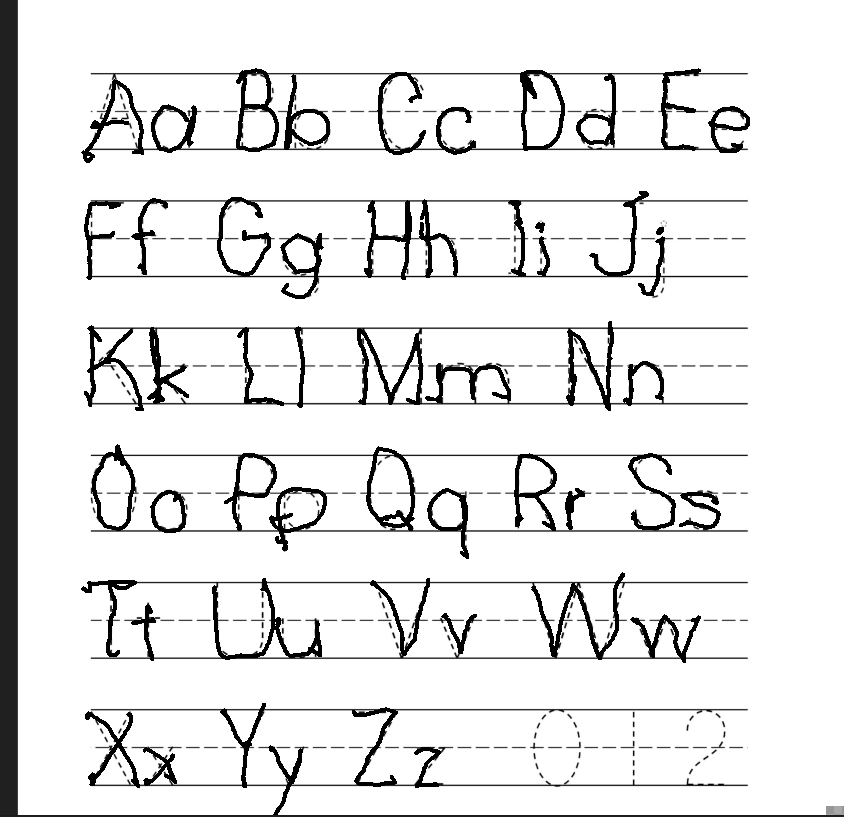 Aa Bb Cc Dd Ee
Ff Gg Hh Ii Jj
Kk Ll Mm Nn
Oo Pp Qq Rr Ss
Tt Uu Vv Ww
Xx Yy Zz 0 1 2